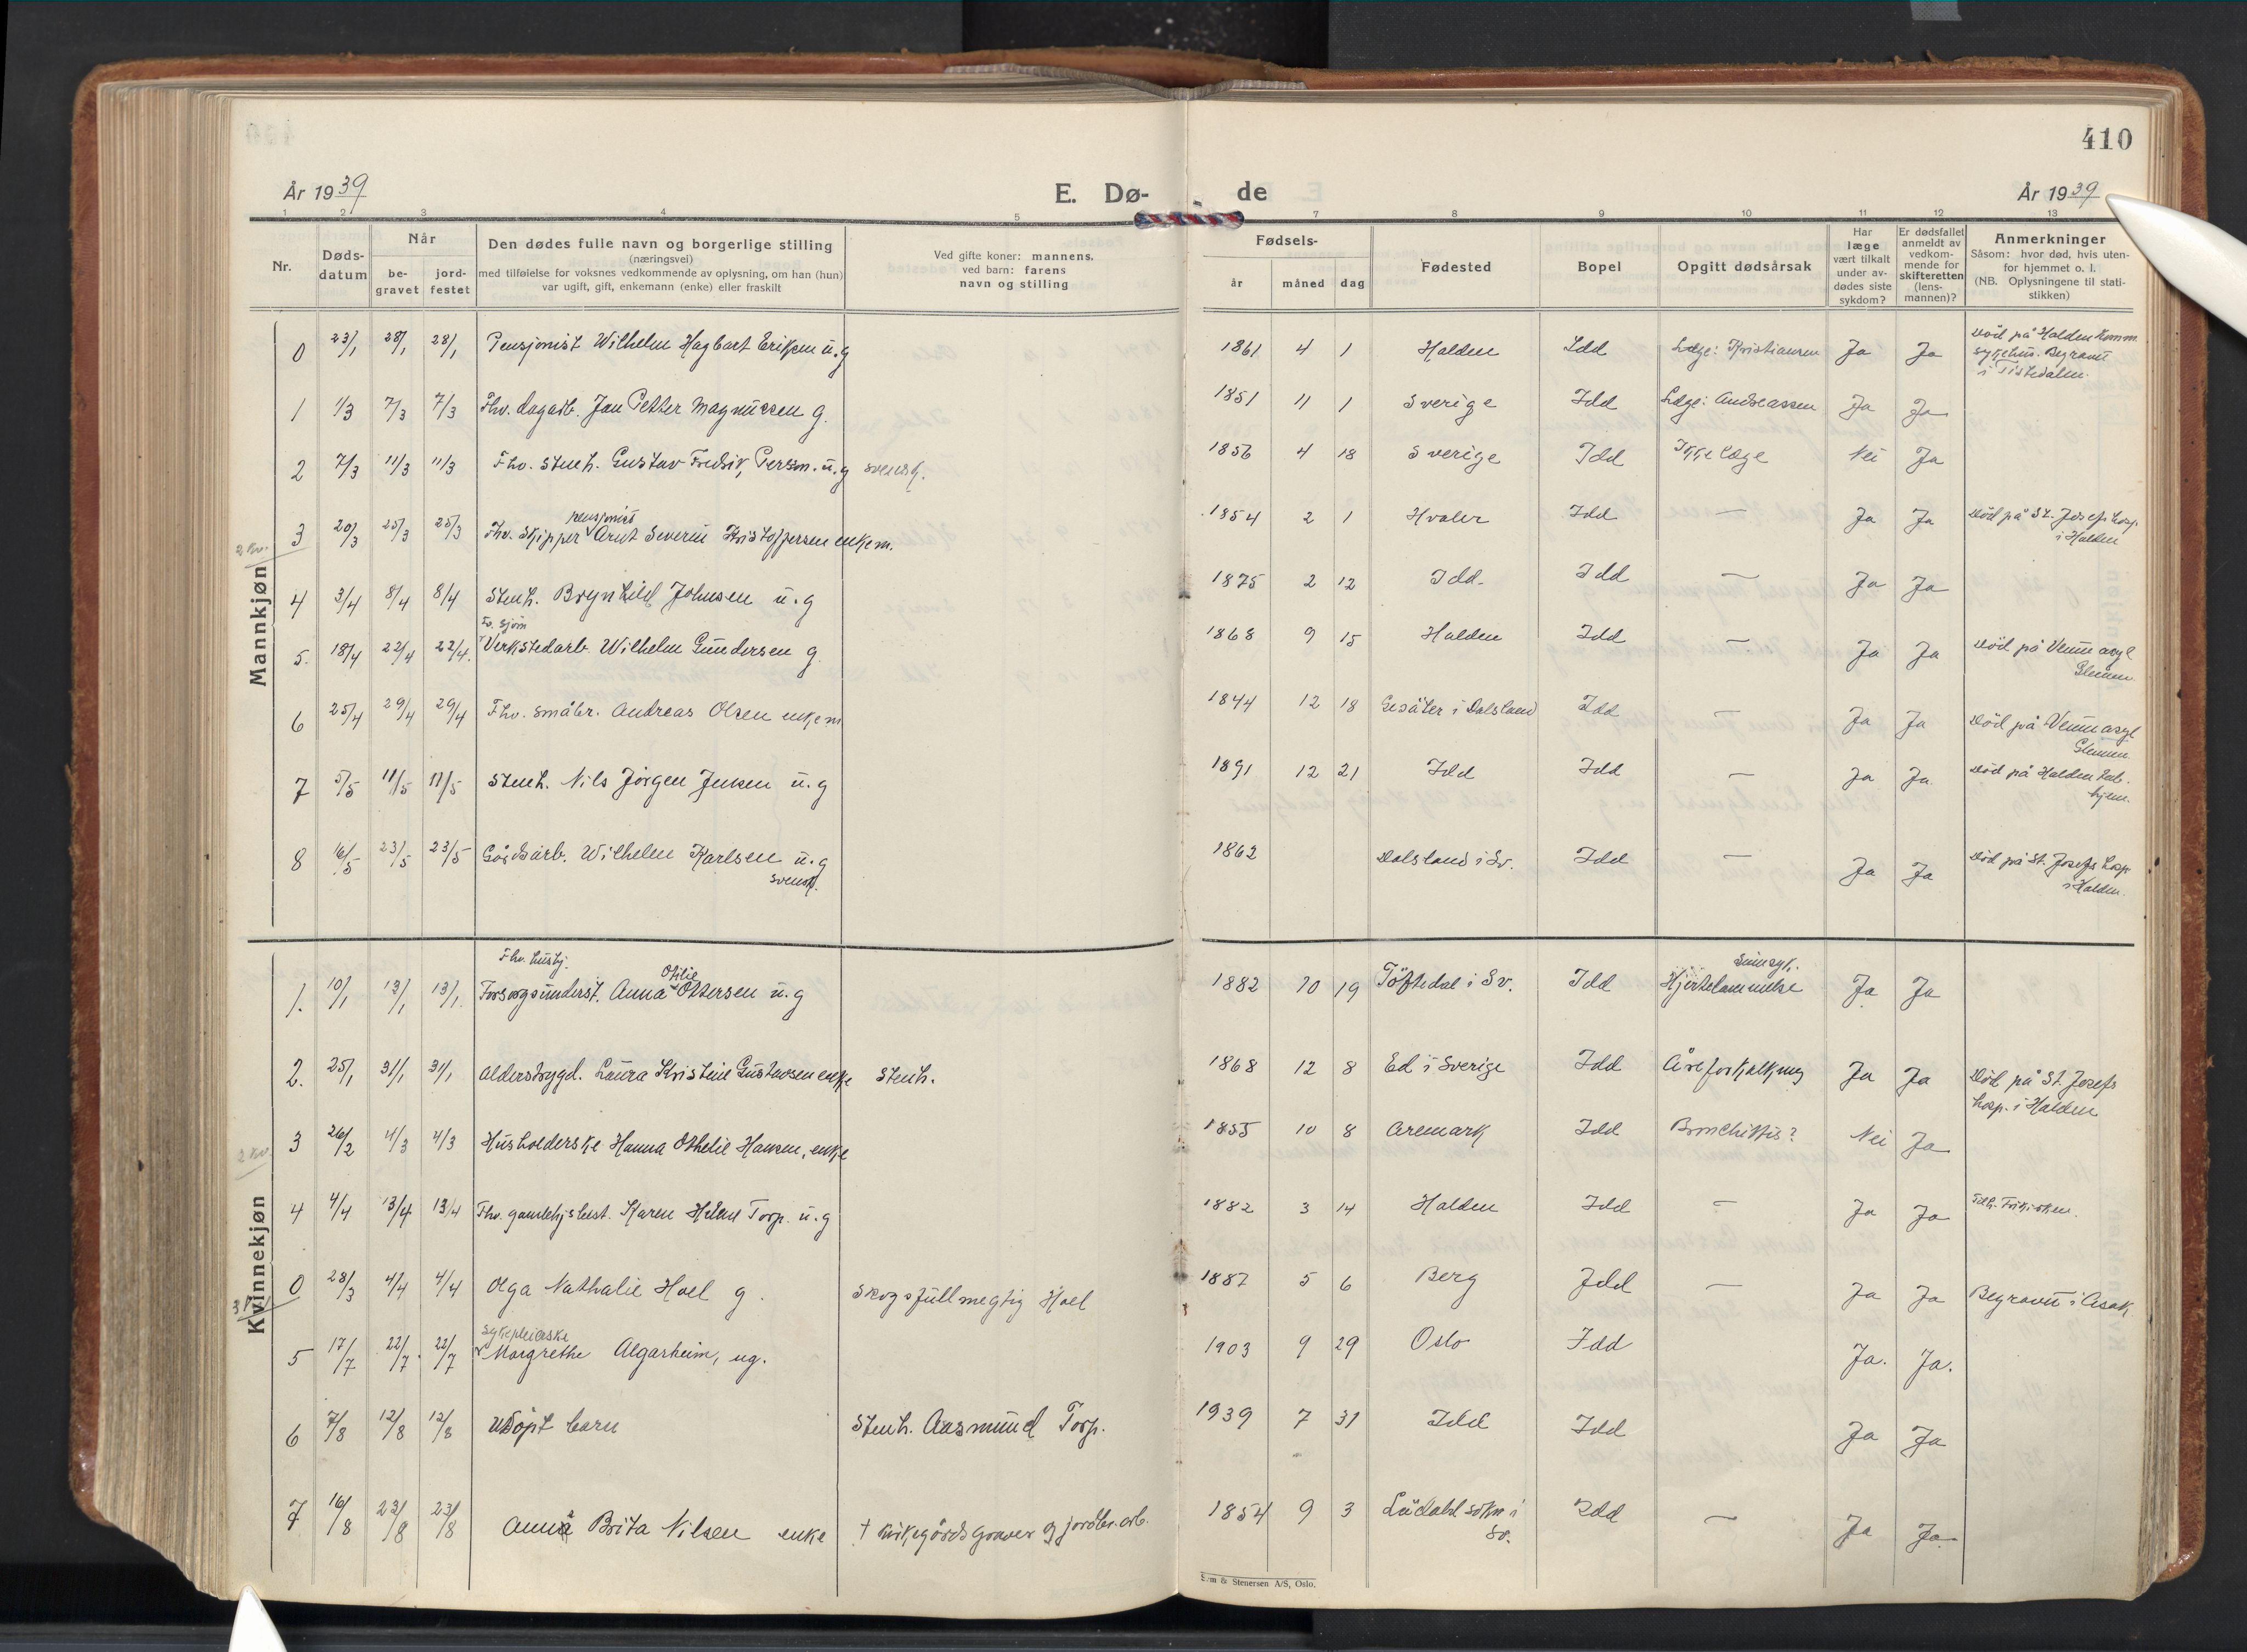 410
År 1939
E. Dø-
de
År 1939
1 2 3 4 5 7 8 9 10 11 12 13
Nr.
Døds-
datum
Når
be-
gravet
jord-
festet
Den dødes fulle navn og borgerlige stilling
(næringsvei)
med tilføielse for voksnes vedkommende av oplysning, om han (hun)
var ugift, gift, enkemann (enke) eller fraskilt
Ved gifte koner: mannens.
ved barn: farens
navn og stilling
Fødsels-
år måned dag
Fødested
Bopel
Opgitt dødsårsak
Har
læge
vært tilkalt
under av-
dødes siste
sykdom?
Er dødsfallet
anmeldt av
vedkom-
mende for
skifteretten
(lens-
mannen)?
Anmerkninger
Såsom: hvor død, hvis uten-
for hjemmet o. l.
(NB. Oplysningene til stati-
stikken)
Mannkjøn
0 23/1 28/1 28/1 Pensjonist Wilhelm Hagbart Eriksen u.g 1861 4 1 Halden Idd Læge: Kristiansen Ja Ja Död på Halden komm.
sykehus. Begravet
i Tistedalen.
1 1/3 7/3 7/3 Fhv. dagarb. Jan Petter Magnussen g. 1851 11 1 Sverige Idd Læge: Andreassen Ja Ja
2 7/3 11/3 11/3 Fhv. Stenh. Gustav Fredrik Persson. u.g svensk. 1856 4 18 Sverige Idd Ikke læge Nei Ja
2 kv.
pensjonist
3 20/3 25/3 25/3 Fhv. Skipper Arnt Severin Kristoffersen enkem. 1854 2 1 Hvaler Idd — Ja Ja Död på St. Josefs hosp.
i Halden
4 3/4 8/4 8/4 Stenh. Brynhild Johnsen u.g 1875 2 12 Idd. Idd — Ja Ja
fv. sjöm
5. 18/4 22/4 22/4. Verkstedarb. Wilhelm Gundersen g. 1868 9 15 Halden Idd — Ja Ja Död på Veum asyl
Glemmen
6 25/4 29/4 29/4 Fhv. småbr. Andreas Olsen enkem 1844 12 18 Gesäter i Dalsland Idd — Ja Ja Död på Veum asyl
Glemmen
7 5/5 11/5 11/5 Stenh. Nils Jörgen Jensen u.g 1891 12 21 Idd Idd — Ja Ja Död på Halden tub.
hjem.
8 16/5 23/5 23/5 Gårdsarb. Wilhelm Karlsen u.g
svensk.
1862 Dalsland i Sv. Idd — Ja Ja Död på St. Josefs hosp
i Halden.
Kvinnekjøn
Fhv. hushj.
Otilie
sinnsyk.
1. 10/1 13/1 13/1. Forsorgsunderst. Anna Ottersen u.g 1882 10 19 Töftedal i Sv. Idd Hjertelammelse Ja Ja
2. 25/1 31/1 31/1 Alderstrygd. Laura Kristine Gustavsen enke Stenh. 1868 12 8 Ed i Sverige Idd Åreforkalkning Ja Ja Död på St. Josefs
hosp. i Halden
2 kv.
3 26/2 4/3 4/3 Husholderske Hanna Othelie Hansen, enke 1855 10 8 Aremark Idd Bronchittis? Nei Ja
4 4/4 13/4 13/4 Fhv. gamlehjsbest. Karen Helene Torp. u.g 1882 3 14 Halden Idd — Ja Ja Tilh. Frikirken.
0 28/3 4/4 4/4 Olga Nathalie Hoel g. Skogsfullmegtig Hoel 1887 5 6 Berg Idd — Ja Ja Begravet i Asak
sykepleierske
5 17/7 22/7 22/7 Margrethe Algarheim, ug. 1903 9 29 Oslo Idd Ja. Ja.
6 7/8 12/8 12/8 Udöpt barn Stenh. Aasmund Torp. 1939 7 31 Idd Idd Ja Ja
7 16/8 23/8 23/8 Anna Brita Nilsen enke † kirkegårdsgraver og jordbr.arb. 1854 9 3 sokn i
Sv.
Idd — Ja Ja
& Stenersen A/S, Oslo.